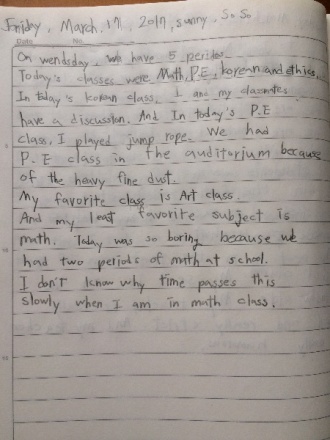 Friday, March, 17, 2017, sunny, So So
Date No
On wendsday, We have 5 periods
Today's classes were Math, P.E, korean and ethics.
In today's korean class, I and my classmates
have a discussion. And In today's P.E
class, I played jump rope. We had
P.E class in the auditorium because
of the heavy fine dust.
My favorite class is Art class.
And my least favorite subject is
math. Today was so boring because we
had two periods of math at school.
I don't know why time passes this
slowly when I am in math class.